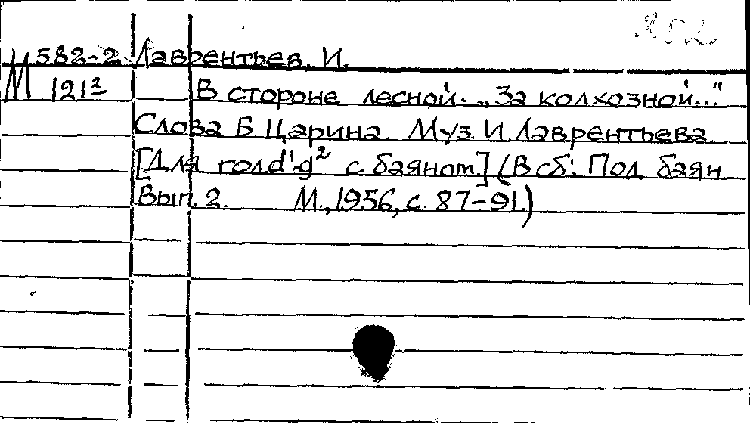 М 582-2 Лаврентьев, И.
121²
В стороне лесной. „За колхозной..."
Слова Б Царина. Муз. И Лаврентьева
[Для с. баяном] (В сб: Под баян
Вып. 2. М., 1956, с. 87-91.)